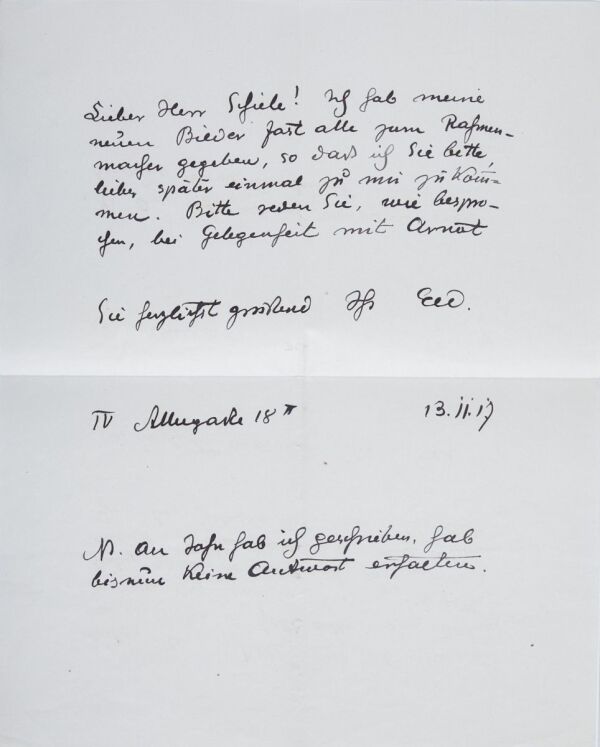 Lieber Herr Schiele! Ich hab meine
neuen Bilder fast alle zum Rahmen-
macher gegeben, so dass ich Sie bitte,
lieber später einmal zu mir zu kom-
men. Bitte reden Sie, wie bespro-
chen, bei Gelegenheit mit Arnot
Sie herzlichst grüssend Ihr
IV Alleegasse 18 II 13.II.17
N. an Jahn hab ich geschrieben, hab
bis nun keine Antwort erhalten.